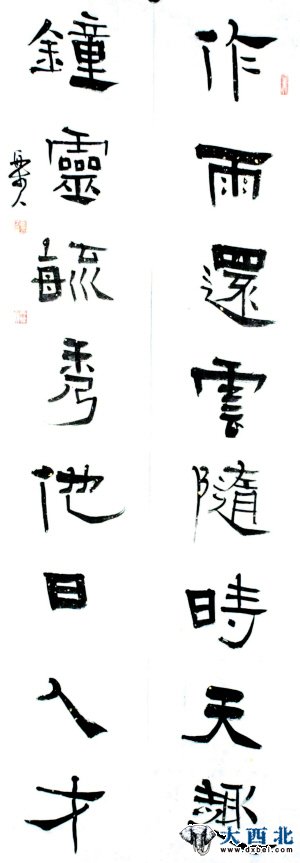 作雨還雲隨時天趣
鐘靈毓秀他日人才
大西北
www.dxbei.com